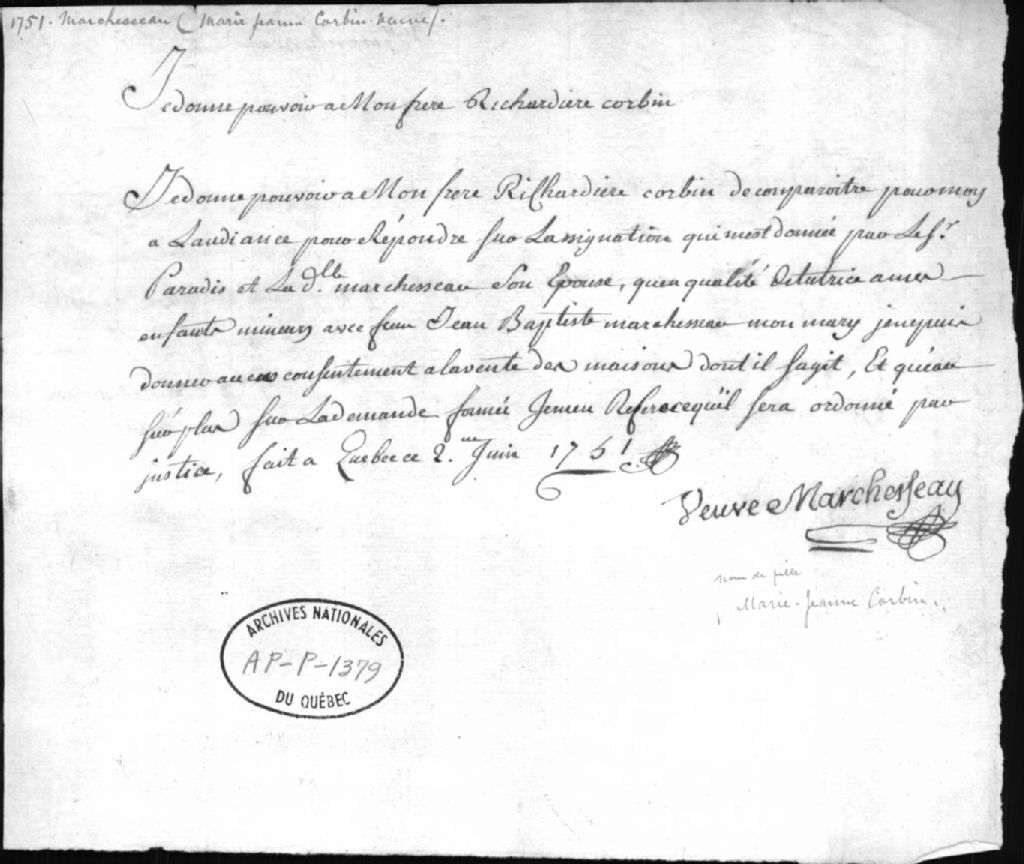 1751. Marchesseau (Marie jeanne Corbin veuve).
Je donne pouvoir a Mon frere Richardiere corbin
Je donne pouvoir a Mon frere Rilhardiere corbin de comparoitre pour moy
a Laudiance pour Répondre sur Lassignation qui mest donnée par Le Sr.
Paradis et La dlle. marchesseau Son Epouse, qu'en qualité de tutrice a mes
enfants mineurs avec feu Jean Baptiste marchesseau mon mary je ne puis
donner aucun consentement a la vente des maisons dont il sagit, Et qu'au
surplus sur La demande formée Jemen Refere ce quïl sera ordonné par
justice, fait a Quebec ce 2.me Juin 1751
Veuve Marchesseau
nom de fille
Marie-Jeanne Corbin.
ARCHIVES NATIONALES
AP-P-1379
DU QUÉBEC